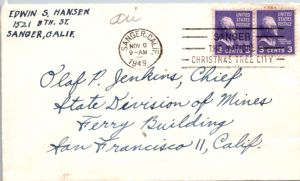 EDWIN S. HANSEN
1521 8TH. ST.
SANGER, CALIF.
SANGER, CALIF.
NOV 9
9-AM
1949
SANGER
CHRISTMAS TREE CITY
3 CENTS 3
3 CENTS 3
Olaf P. Jenkins, Chief
State Division of Mines
Ferry Building
San Francisco 11, Calif.